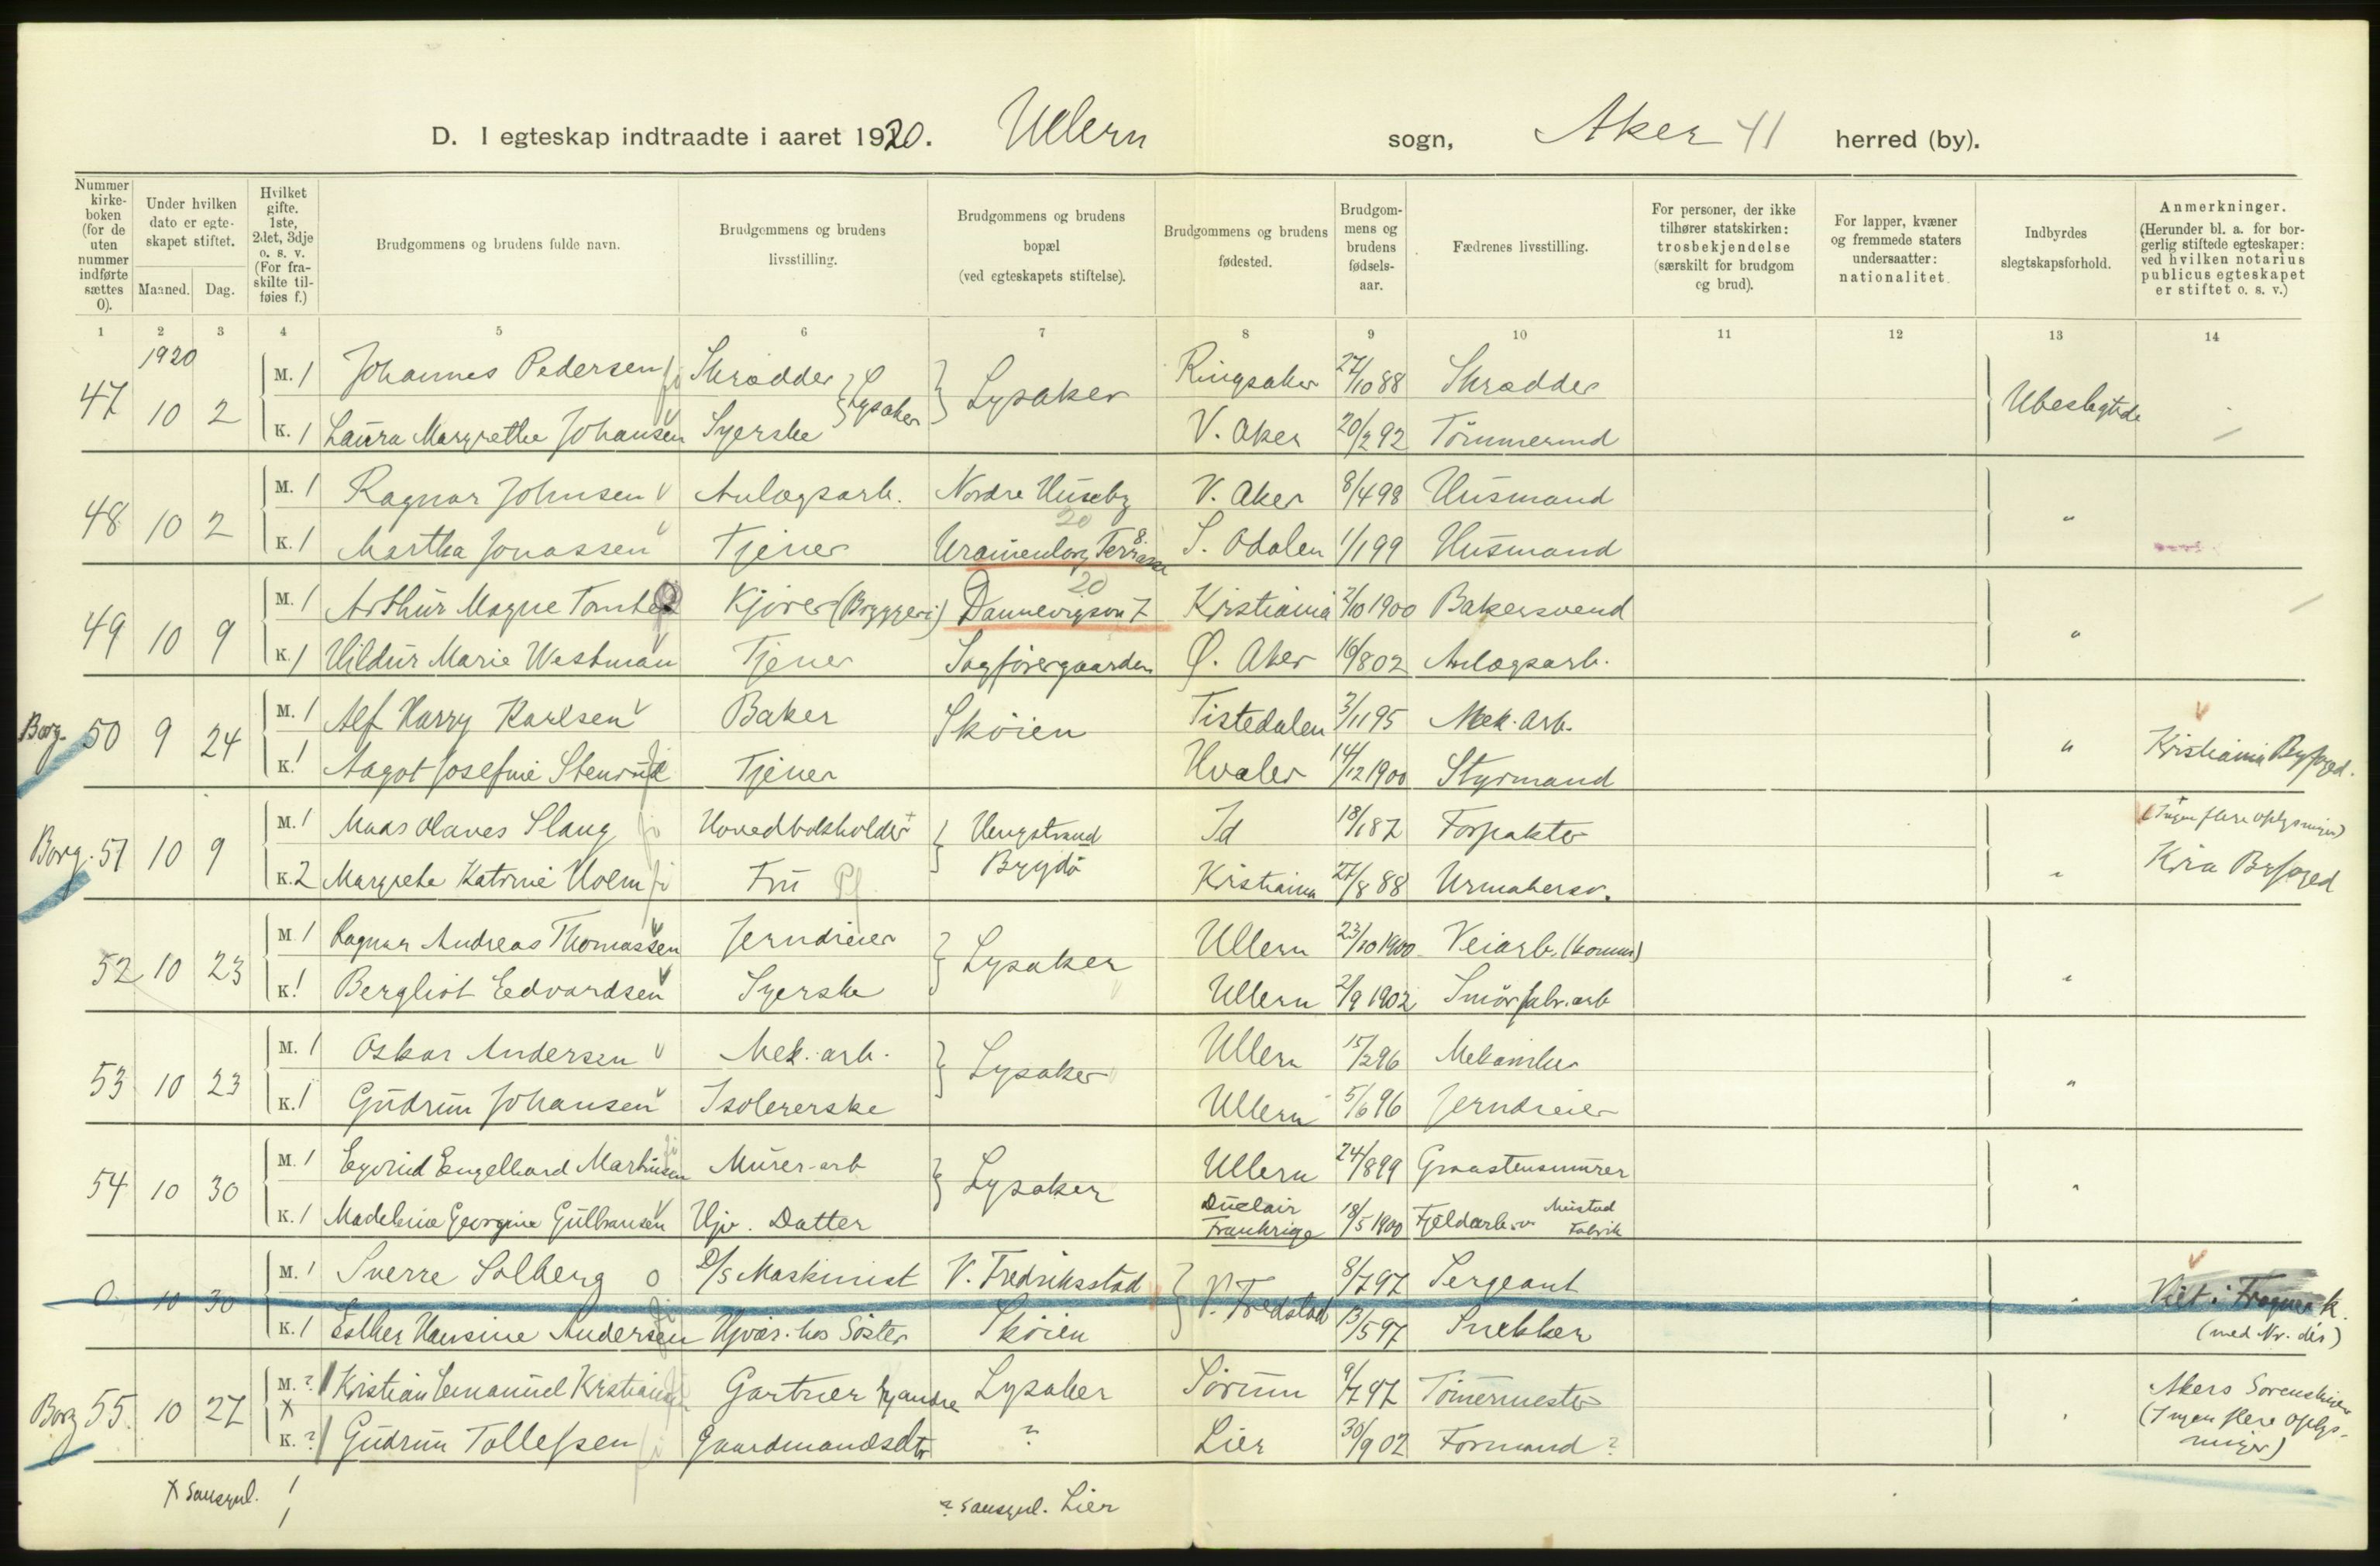 D. I egteskap indtraadte i aaret 1920. Ullern sogn, Aker 41 herred (by).
Nummer kirke-boken (for de uten nummer indførte sættes 0).
Under hvilken dato er egte-skapet stiftet.
Maaned. Dag.
Hvilket gifte. 1ste, 2det, 3dje o. s. v. (For fra-skilte til-føies f.)
Brudgommens og brudens fulde navn.
Brudgommens og brudens livsstilling.
Brudgommens og brudens bopæl (ved egteskapets stiftelse).
Brudgommens og brudens fødested.
Brudgom-mens og brudens fødsels-aar.
Fædrenes livsstilling.
For personer, der ikke tilhører statskirken: trosbekjendelse (særskilt for brudgom og brud).
For lapper, kvæner og fremmede staters undersaatter: nationalitet.
Indbyrdes slegtskapsforhold.
Anmerkninger. (Herunder bl. a. for bor-gerlig stiftede egteskaper: ved hvilken notarius publicus egteskapet er stiftet o. s. v.)
1 2 3 4 5 6 7 8 9 10 11 12 13 14
1920
47 10 2 M. 1 Johannes Pedersen Skrædder } Lysaker } Lysaker Ringsaker 27/10 88 Skrædder Ubeslegtede
K. 1 Laura Margrethe Johansen Syerske V. Aker 20/2 92 Tömmermd
48 10 2 M. 1 Ragnar Johnsen Anlægsarb. Nordre Huseby V. Aker 8/4 98 Husmand "
K. 1 Martha Jonassen Tjener Uranienborg Terrasse 8. S. Odalen 1/1 99 Husmand
20
49 10 9 M. 1 Arthur Magne Kjörer (Bryggeri) Dannevigsvn 7 Kristiania 2/10 1900 Bakersvend "
K. 1 Hildur Marie Westman Tjener Sagförergaarden Ø. Aker 16/8 02 Anlægsarb.
Borg. 50 9 24 M. 1 Alf Harry Karlsen Baker Sköien Tistedalen 3/11 95 Mek. arb. " Kristiania Byfoged.
K. 1 Aagot Josefine Stenrud Tjener Hvaler 14/12 1900 Styrmand
Borg. 51 10 9 M. 1 Maas Olaves Slang Hovedbokholder } Hengstrand Bygdö Id 18/1 87 Forpakter " (Ingen flere oplysninger)
K. 2 Margrete Katrine Holm Fru Kristiania 27/8 88 Urmakersv. Kra Byfoged
52 10 23 M. 1 Ragnar Andreas Thomassen Jerndreier } Lysaker Ullern 23/10 1900 Veiarb. (komm) "
K. 1 Bergliot Edvardsen Syerske Ullern 2/9 1902 Smörfabr. arb
53 10 23 M. 1 Oskar Andersen Mek. arb. } Lysaker Ullern 15/2 96 Mekaniker "
K. 1 Gudrun Johansen Isolererske Ullern 5/6 96 Jerndreier
54 10 30 M. 1 Eyvind Engelhard Martinsen Murer-arb } Lysaker Ullern 24/8 99 Graastensmurer "
K. 1 Madeleine Georgine Gulbransen Hjv. Datter Duclair Frankrige 18/5 1900 Fjeldarb. v. Mustad Fabrik
0 10 30 M. 1 Sverre Solberg D/S Maskinist V. Fredriksstad } V. Fredstad 8/7 97 Sergeant " Viet i Frogner k.
K. 1 Esther Hansine Andersen Hjvær. hos Söster Sköien 13/5 97 Snekker (med Nr. der)
Borg 55. 10 27 M. ? 1 Kristian Emanuel Kristiansen Gartner hj andre Lysaker Sörum 9/7 97 Tömermester " Akers Sorenskriver
X
K. ? 1 Gudrun Tollefsen Gaardmandsdtr ? Lier 30/9 02 Formand ? (Ingen flere oplys-ninger)
X Sansynl. 1
1
? sansynl. Lier